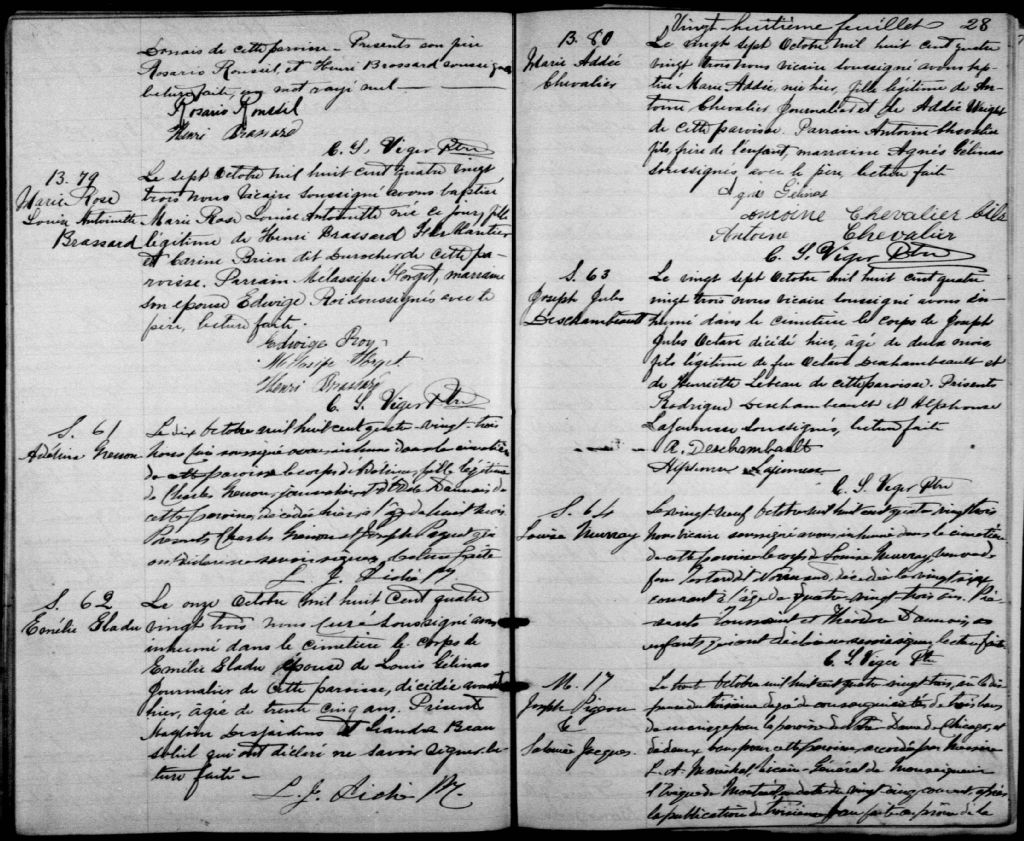 Donais de cette paroisse – Presents son père
Rosario Roussil, et Henri Brossard soussignés
lecture faite, un mot rayé nul —
Rosario Roussil
Henri Brassard
C. S. Viger Ptre
B. 79
Marie Rose
Louise Antoinette
Brassard
Le sept Octobre mil huit cent quatre vingt
trois nous vicaire soussigné avons baptisé
Marie Rose Louise Antoinette née ce jour, fille
légitime de Henri Brassard
et Carine Brien dit Durocher de cette pa-
roisse. Parrain Forget, marraine
son epouse Edwige Roi soussignés avec le
père, lecture faite.
Edwige Roy
Forget
Henri Brassard
C. S. Viger Ptre
S. 61
Le dix octobre mil huit cent quatre-vingt-trois
Nous soussigné avons inhumé dans le cimetière
de cette paroisse le corps de fille légitime
de Charles journalier, et de
cette paroisse, décédée hier, à l'âge de mois
Presents Charles et Joseph Paquet qui
ont déclaré ne savoir signer, lecture faite
L. J.
S. 62
Emélie Gladu
Le onze Octobre mil huit cent quatre
vingt trois nous Curé Soussigné avons
inhumé dans le cimetière le corps de
Emélie Gladu épouse de Louis Gélinas
Journalier de cette paroisse, décédée avant
hier, âgée de trente cinq ans. Présent
Desjardins et Léandre Beau
soleil qui ont déclaré ne savoir signer. lec
ture faite —
L. J.
Vingt-huitième feuillet 28
B. 80
Marie Addée
Chevalier
Le vingt sept Octobre mil huit cent quatre
vingt trois nous vicaire soussigné avons bap-
tisé Marie Addée, née hier, fille légitime de An-
toine Chevalier Journalier et de Addée Wright
de cette paroisse. Parrain Antoine Chevalier
fils, frère de l'enfant, marraine Agnès Gélinas
soussignés, avec le père, lecture fait
Gélinas
Antoine Chevalier fils
Antoine Chevalier
C. S. Viger Ptre
S. 63
Joseph Jules
Deschambeault
Le vingt sept Octobre mil huit cent quatre
vingt trois nous vicaire soussigné avons in-
humé dans le cimetière le corps de Joseph
Jules Octave décédé hier, âgé de deux mois
fils légitime de feu Octave Deschambeault et
de Henriette Lebeau de cette paroisse. Présents
Rodrigue Deschambeault et Alphonse
Lajeunesse soussignés, lecture fait
R. Deschambault
Alphonse Lajeunesse
C. S. Viger Ptre
S. 64
Louise Murray
Le vingt-neuf octobre mil huit cent quatre-vingt trois
Nous vicaire soussigné avons inhumé dans le cimetière
de cette paroisse le corps de Louise Murray, veuve de
feu décédée le vingt-six
courant à l'âge de quatre-vingt-trois ans. Pré-
sents Toussaint et Théodore ses
enfants, qui ont déclaré ne savoir signer, lecture faite
C. S. Viger Ptre
M. 17
Joseph Pigeon
&
Salomée Jacques
Le trente octobre mil huit cent quatre vingt trois, vu la dis-
pense du troisième degré de consanguinité, de trois bans
de mariage pour la paroisse de Notre Dame de Chicago, et
de deux bans pour cette paroisse, accordée par Messire
L. A. Maréchal, vicaire-Général de Monseigneur
l'Evêque de Montréal, en date du vingt cinq courant, après
la publication du troisième ban faite au prône de la